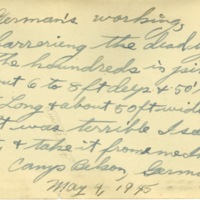 German's working,
the dead
the houndreds is
about 6 to 8 ft deep & 50'
Long & about 50 ft wide
it was terrible I
& take it from me
Camp Belson,
May 9, 1945